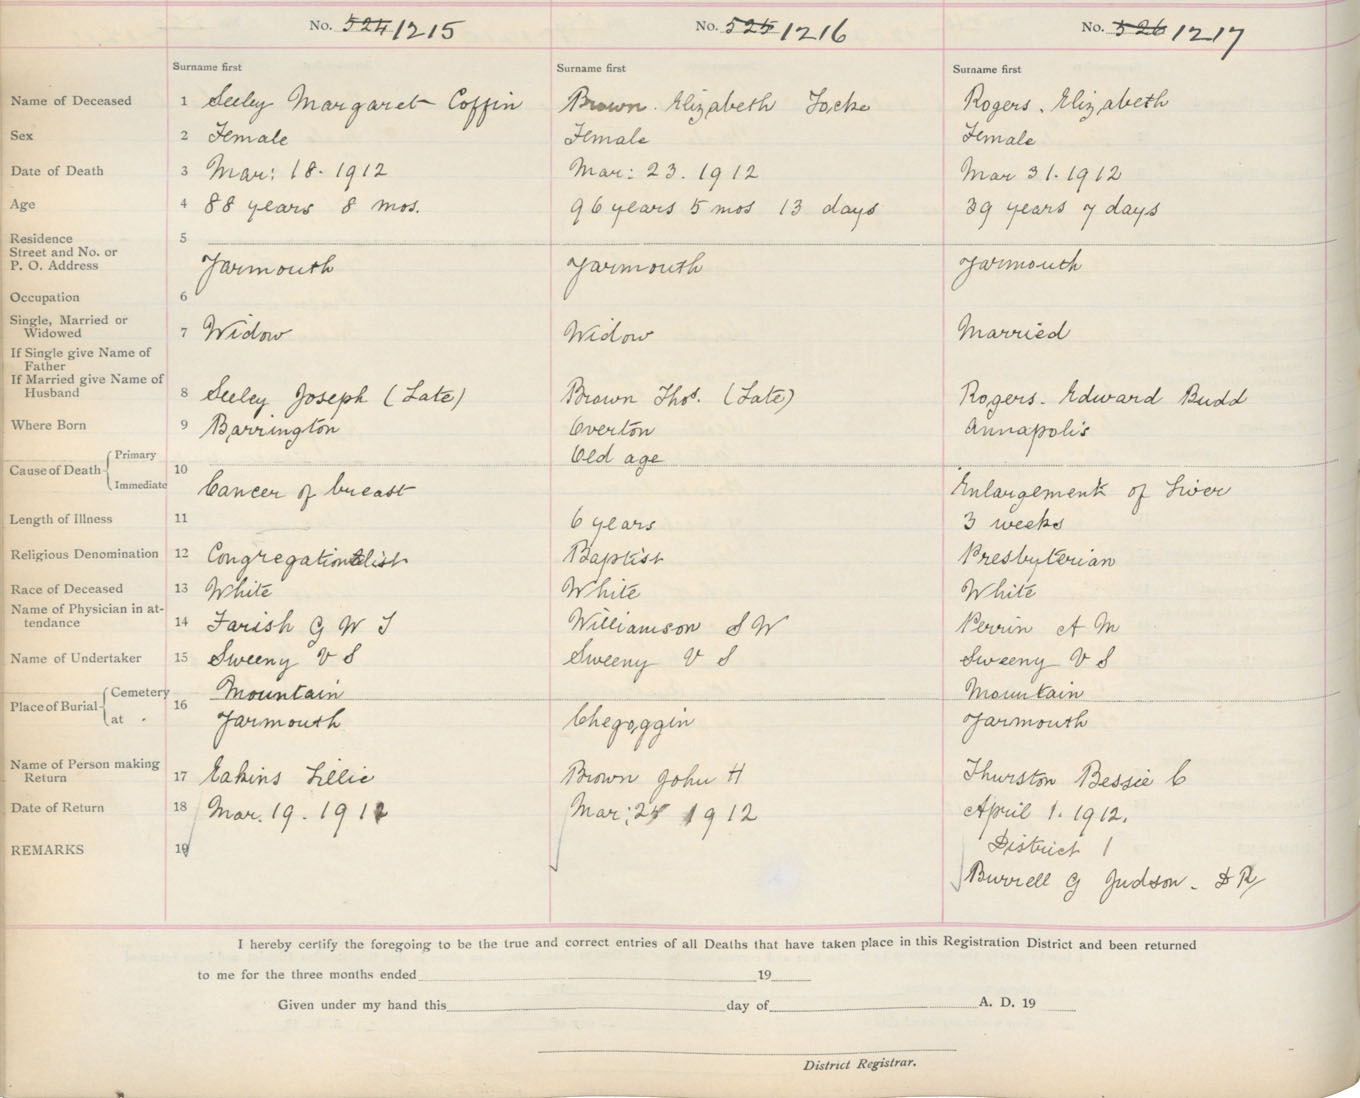 No. 524 1215 No. 525 1216 No. 526 1217
Surname first Surname first Surname first
Name of Deceased 1 Seeley Margaret Coffin Brown. Elizabeth Locke Rogers. Elizabeth
Sex 2 Female Female Female
Date of Death 3 Mar: 18. 1912 Mar: 23. 1912 Mar 31. 1912
Age 4 88 years 8 mos. 96 years 5 mos 13 days 39 years 7 days
Residence 5
Street and No. or
P. O. Address Yarmouth Yarmouth Yarmouth
Occupation 6
Single, Married or
Widowed 7 Widow Widow Married
If Single give Name of
Father
If Married give Name of
Husband 8 Seeley Joseph (Late) Brown Thos. (Late) Rogers. Edward Budd
Where Born 9 Barrington Overton Annapolis
Primary Old age
Cause of Death 10
Immediate Cancer of breast Enlargement of Liver
Length of Illness 11 6 years 3 weeks
Religious Denomination 12 Congregationalist Baptist Presbyterian
Race of Deceased 13 White White White
Name of Physician in at-
tendance 14 Farish G W T Williamson S W Perrin A M
Name of Undertaker 15 Sweeny V S Sweeny V S Sweeny V S
Cemetery Mountain Mountain
Place of Burial 16
at Yarmouth Chegoggin Yarmouth
Name of Person making
Return 17 Eakins Lillie Brown John H Thurston Bessie C
Date of Return 18 Mar. 19. 1912 Mar: 1912 April 1. 1912.
REMARKS 19 District 1
Burrell G Judson. D R
I hereby certify the foregoing to be the true and correct entries of all Deaths that have taken place in this Registration District and been returned
to me for the three months ended 19
Given under my hand this day of A. D. 19
District Registrar.